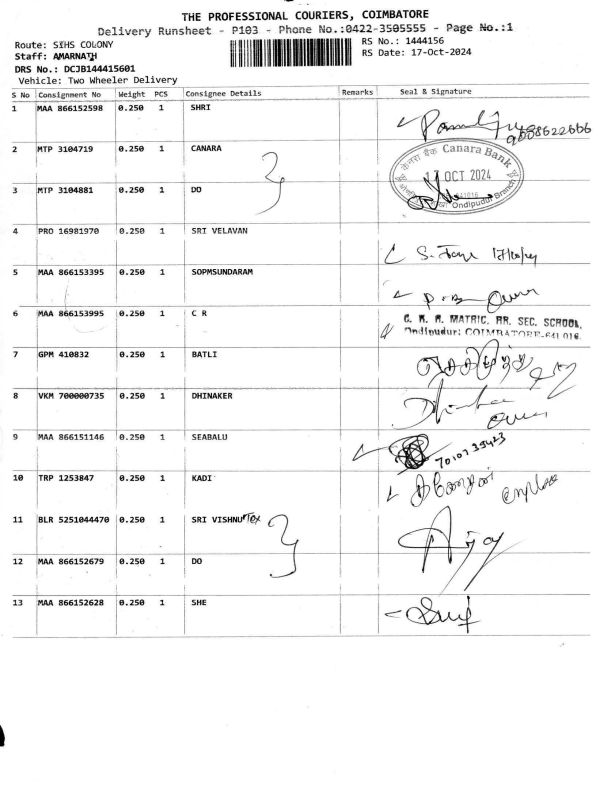 THE PROFESSIONAL COURIERS, COIMBATORE
Delivery Runsheet - P103 - Phone No.:0422-3505555 - Page No.:1
Route: SIHS COLONY
RS No.: 1444156
Staff: AMARNATH
RS Date: 17-Oct-2024
DRS No.: DCJB144415601
Vehicle: Two Wheeler Delivery
S No Consignment No Weight PCS Consignee Details Remarks Seal & Signature
1 MAA 866152598 0.250 1 SHRI
2 MTP 3104719 0.250 1 CANARA
केनरा बैंक Canara Bank
17 OCT 2024
641016
Ondipudur Branch
3 MTP 3104881 0.250 1 DO
4 PRO 16981970 0.250 1 SRI VELAVAN
5 MAA 866153395 0.250 1 SOPMSUNDARAM
6 MAA 866153995 0.250 1 C R
MATRIC. HR. SEC. SCHOOL,
Ondipudur: COIMBATORE-641 016.
7 GPM 410832 0.250 1 BATLI
8 VKM 700000735 0.250 1 DHINAKER
9 MAA 866151146 0.250 1 SEABALU
10 TRP 1253847 0.250 1 KADI
11 BLR 5251044470 0.250 1 SRI VISHNU Tex
Ajay
12 MAA 866152679 0.250 1 DO
13 MAA 866152628 0.250 1 SHE